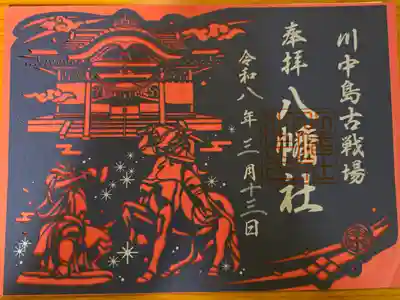 川中島古戦場
奉拝
八幡社
令和八年三月十三日